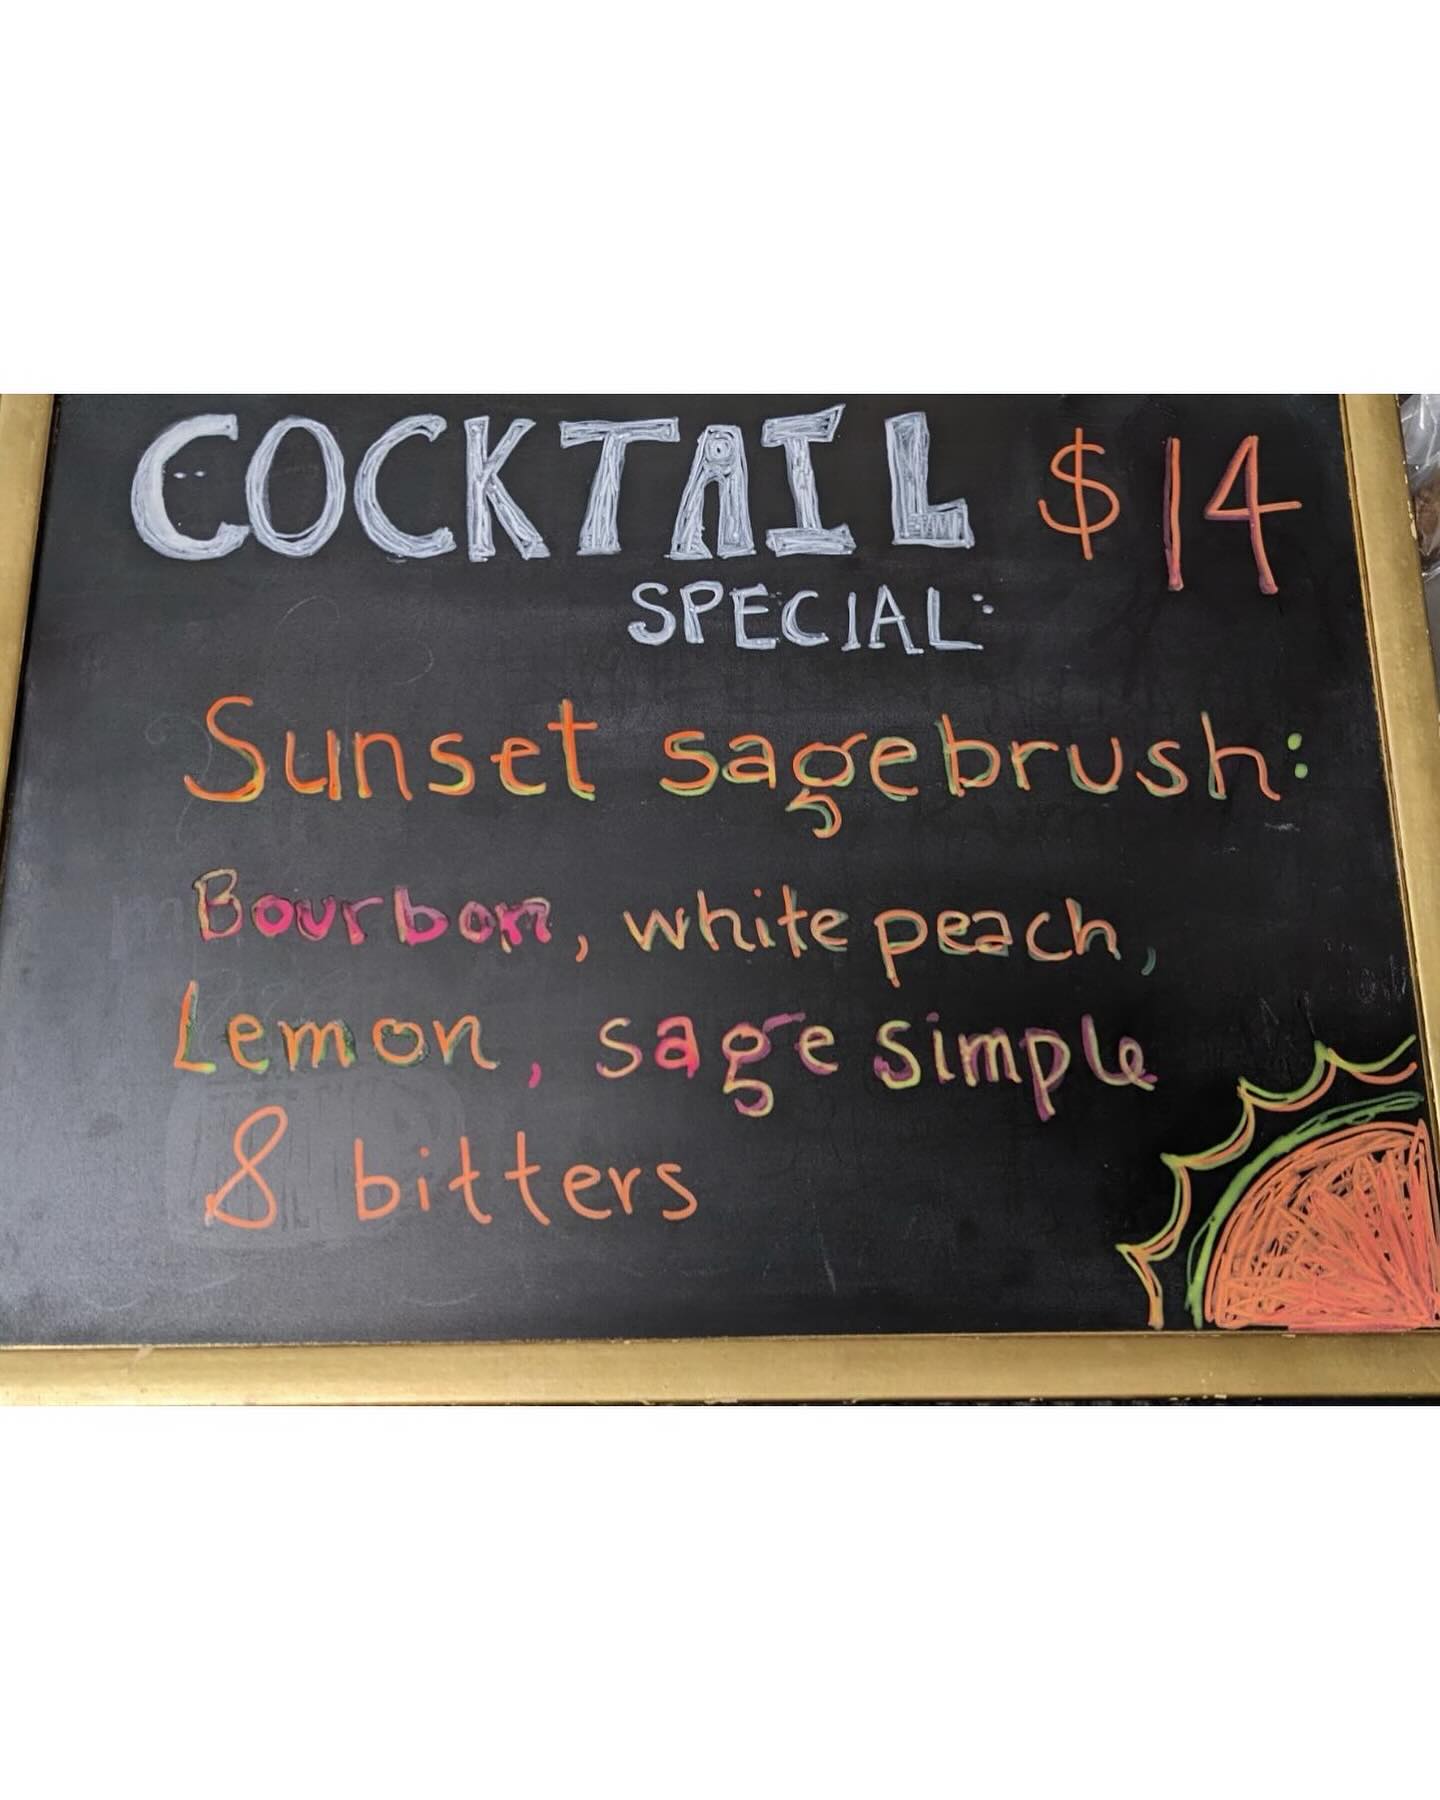 COCKTAIL $14
SPECIAL:
Sunset sagebrush:
Bourbon, white peach,
Lemon, sage simple
& bitters